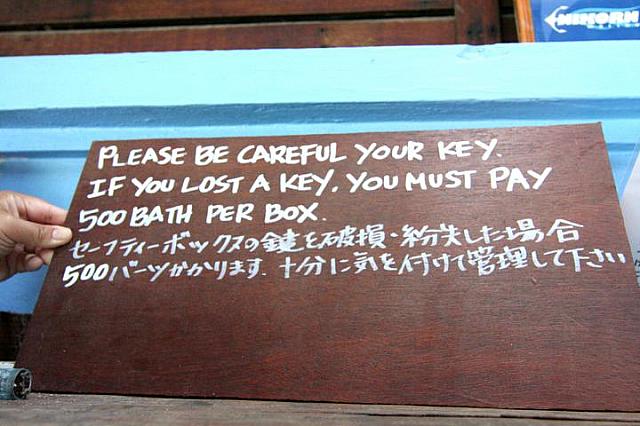 PLEASE BE CAREFUL YOUR KEY.
IF YOU LOST A KEY. YOU MUST PAY
500 BATH PER BOX.
セーフティーボックスの鍵を破損・紛失した場合
500バーツかかります. 十分に気を付けて管理して下さい